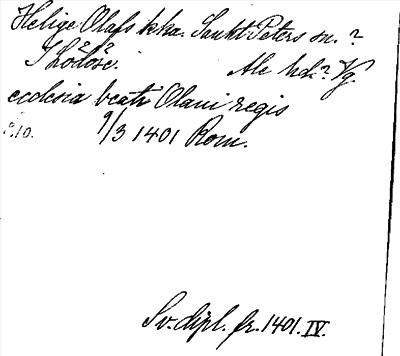 Helige Olafs k:ka. Sankt Peters sn. ?
Ale hd.? Vg.
ecclesia beati Olaui regis
9/3 1401 Rom.
Sv. dipl. fr. 1401. IV.